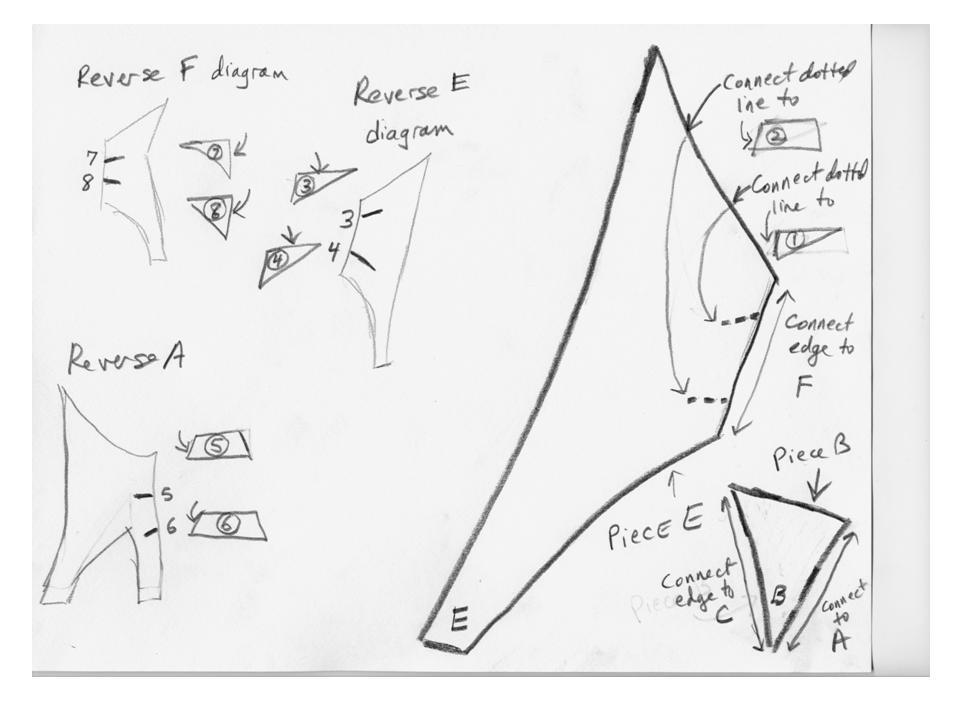 Reverse F diagram
7
8
7
8
Reverse E
diagram
3
4
3
4
Reverse A
5
6
5
6
Connect dotted
line to
2
Connect dotted
line to
1
Connect
edge to
F
Piece E
E
Piece B
B
Connect
edge to
C
Connect
to
A